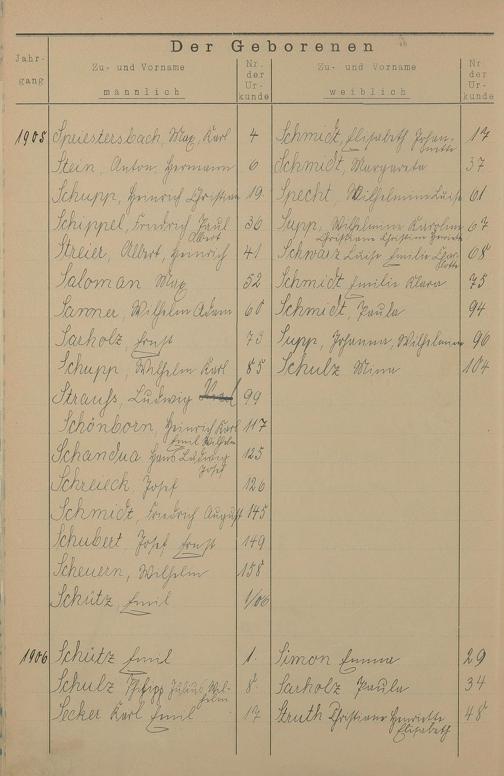 Der Geborenen
Jahrgang Zu- und Vorname männlich Nr. der Urkunde Zu- und Vorname weiblich Nr. der Urkunde
1905 Speiestersbach, Max, Karl 4 Schmidt, Elisabeth Johannette 17
Stein, Anton, Hermann 6 Schmidt, Margareta 37
Schupp, Heinrich Christian 19 Specht, Wilhelmine Luise 61
Schippel, Friedrich Paul Albert 36 Supp, Wilhelmine Karoline Christiane Christine Henriette 67
Streier, Albert, Heinrich 41 Schwarz Luise Emilie Charlotte 68
Saloman Max 52 Schmidt Emilie Klara 75
Sanner, Wilhelm Adam 60 Schmidt, Paula 94
Sarholz Ernst 73 Supp, Johanna, Wilhelmine 96
Schupp, Wilhelm Karl 85 Schulz Mina 104
Strauß, Ludwig 99
Schönborn, Heinrich Karl Emil Wilhelm 117
Schandua Hans Ludwig Josef 125
Schreieck, Josef 126
Schmidt, Friedrich August 145
Schubert, Josef Ernst 149
Scheuern, Wilhelm 158
Schütz, Emil 1/06
1906 Schütz Emil 1. Simon Emma 29
Schulz Philipp Julius Wilhelm 8. Sarholz Paula 34
Secker Karl Emil 17 Struth Christiane Henriette Elisabeth 48